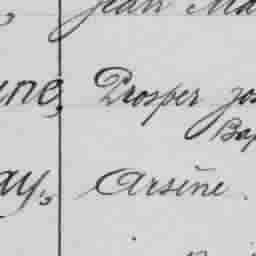 Jean Ma
ne, Prosper Jos
Bap
ay, Arsène.